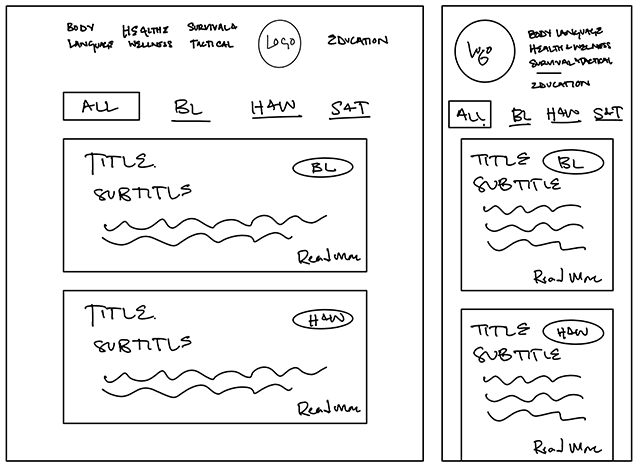 BODY LANGUAGE
HEALTH & WELLNESS
SURVIVAL & TACTICAL
LOGO
EDUCATION
ALL BL H&W S&T
TITLE. BL
SUBTITLE
Read More
TITLE. H&W
SUBTITLE
Read More
LOGO
BODY LANGUAGE
HEALTH & WELLNESS
SURVIVAL & TACTICAL
EDUCATION
ALL. BL H&W S&T
TITLE BL
SUBTITLE
Read More
TITLE H&W
SUBTITLE
Read More